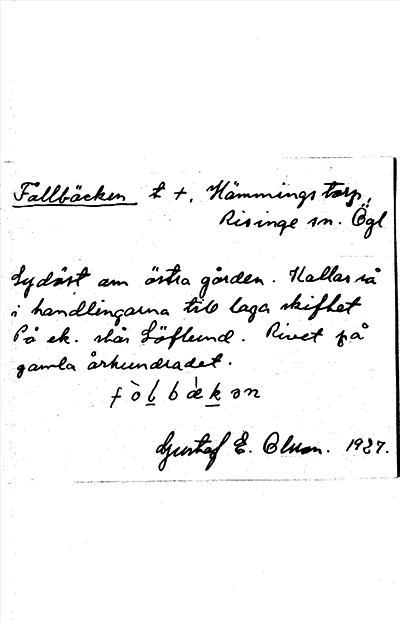 Fallbäcken t +, Hämmingstorp,
Risinge sn. Ögl
Sydöst om östra gården. Kallas så
i handlingarna till laga skifhet
På ek. står Löflund. Rivet på
gamla århundradet.
fòlbækən
Gustaf E. Bluun. 1937.